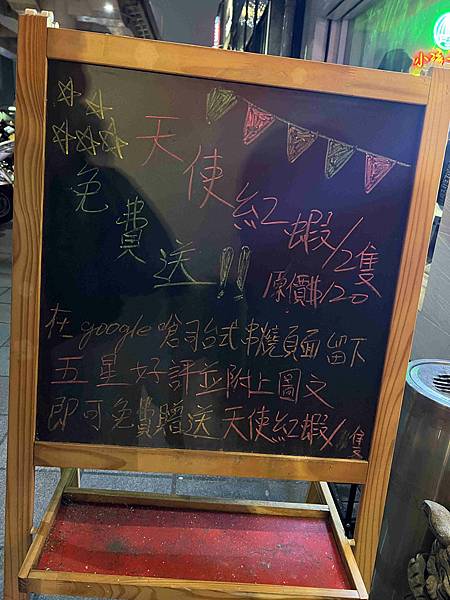 天使紅蝦/2隻
免費送!!
原價$120
在google嗆司台式串燒頁面留下
五星好評並附上圖文
即可免費贈送天使紅蝦/隻